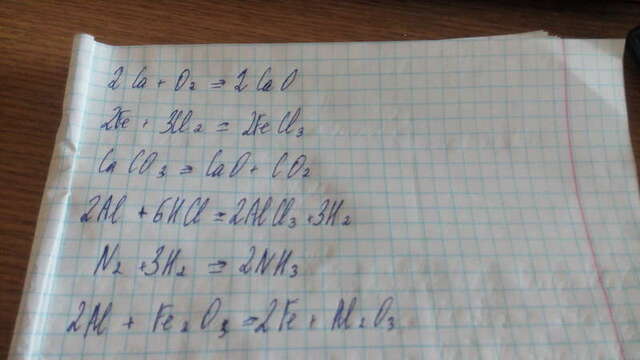 2Ca + O₂ = 2CaO
2Fe + 3Cl₂ = 2FeCl₃
CaCO₃ = CaO + CO₂
2Al + 6HCl = 2AlCl₃ + 3H₂
N₂ + 3H₂ = 2NH₃
2Al + Fe₂O₃ = 2Fe + Al₂O₃